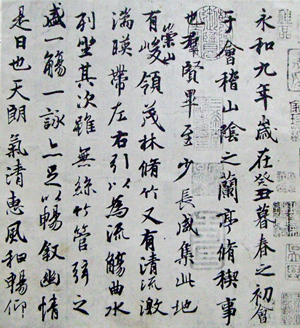 永和九年歲在癸丑暮春之初會
于會稽山陰之蘭亭脩禊事
也群賢畢至少長咸集此地
有崇山峻領茂林脩竹又有清流激
湍暎帶左右引以為流觴曲水
列坐其次雖無絲竹管弦之
盛一觴一詠亦足以暢敘幽情
是日也天朗氣清惠風和暢仰